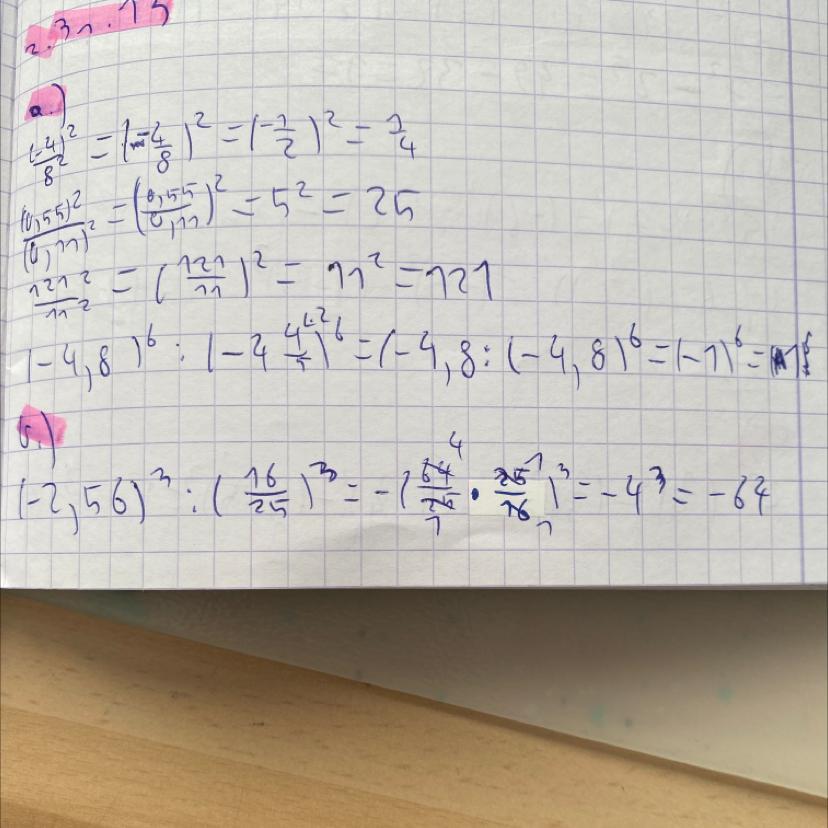 a.)
(-4)²/8² = (-4/8)² = (-1/2)² = 1/4
(0,55)²/(0,11)² = (0,55/0,11)² = 5² = 25
121²/11² = (121/11)² = 11² = 121
(-4,8)⁶ : (-4 4/5)⁶ = (-4,8 : (-4,8)⁶ = (-1)⁶ =
(-2,56)³ : (16/25)³ = -(64/25 · 25/16)³ = -4³ = -64